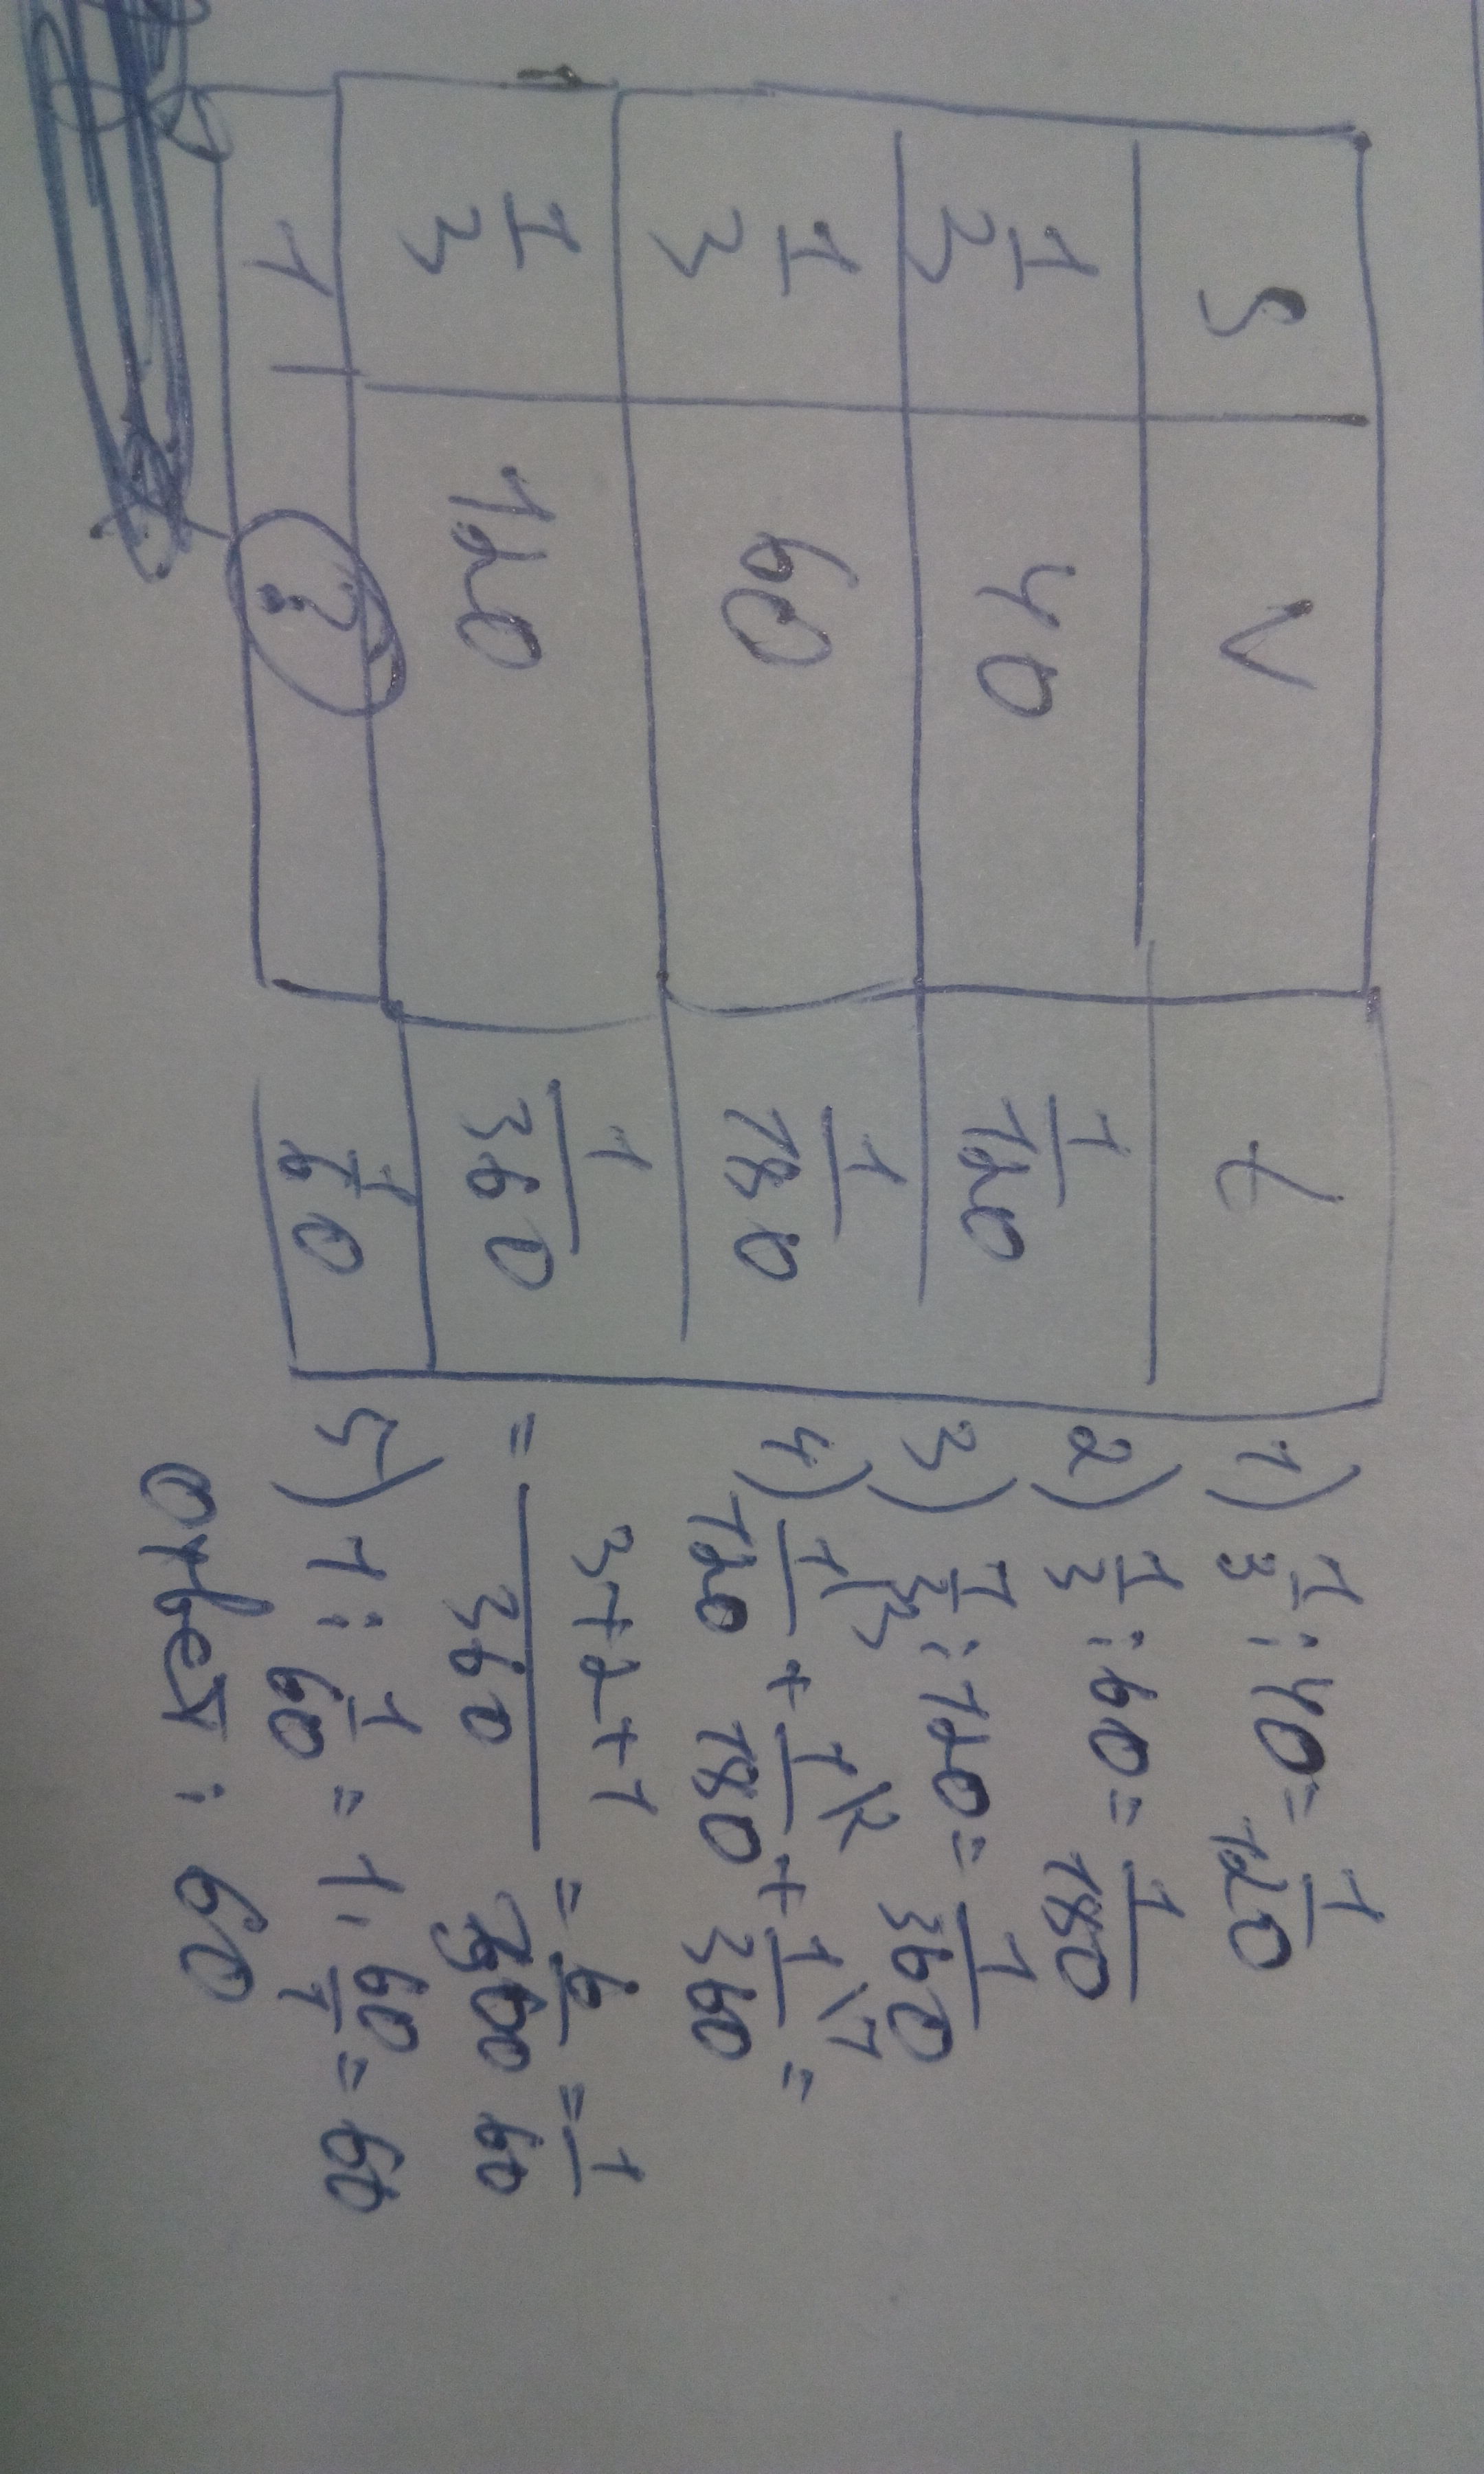 S V t
1/3 40 1/120
1/3 60 1/180
1/3 120 1/360
1 ? 1/60
1) 1/3 : 40 = 1/120
2) 1/3 : 60 = 1/180
3) 1/3 : 120 = 1/360
4) 1\3/120 + 1\2/180 + 1\1/360 =
= 3+2+1/360 = 6/360 = 1/60
5) 1 : 1/60 = 1 · 60/1 = 60
Ответ : 60